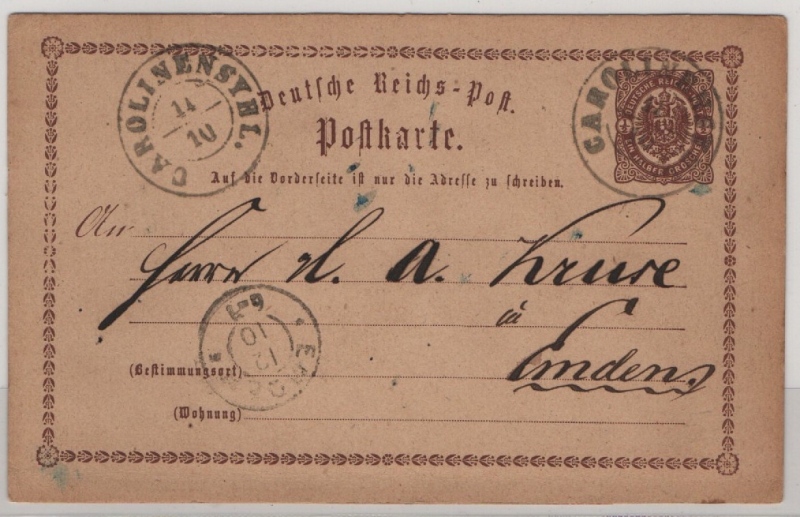 CAROLINENSYHL.
14
10
Deutsche Reichs-Post.
Postkarte.
Auf die Vorderseite ist nur die Adresse zu schreiben.
DEUTSCHE REICHS
EIN HALBER GROSCHEN
CAROLINENS
An
Herrn H. A. Kruse
à
Emden.
EMDEN
12
10
6-7
(Bestimmungsort)
(Wohnung)